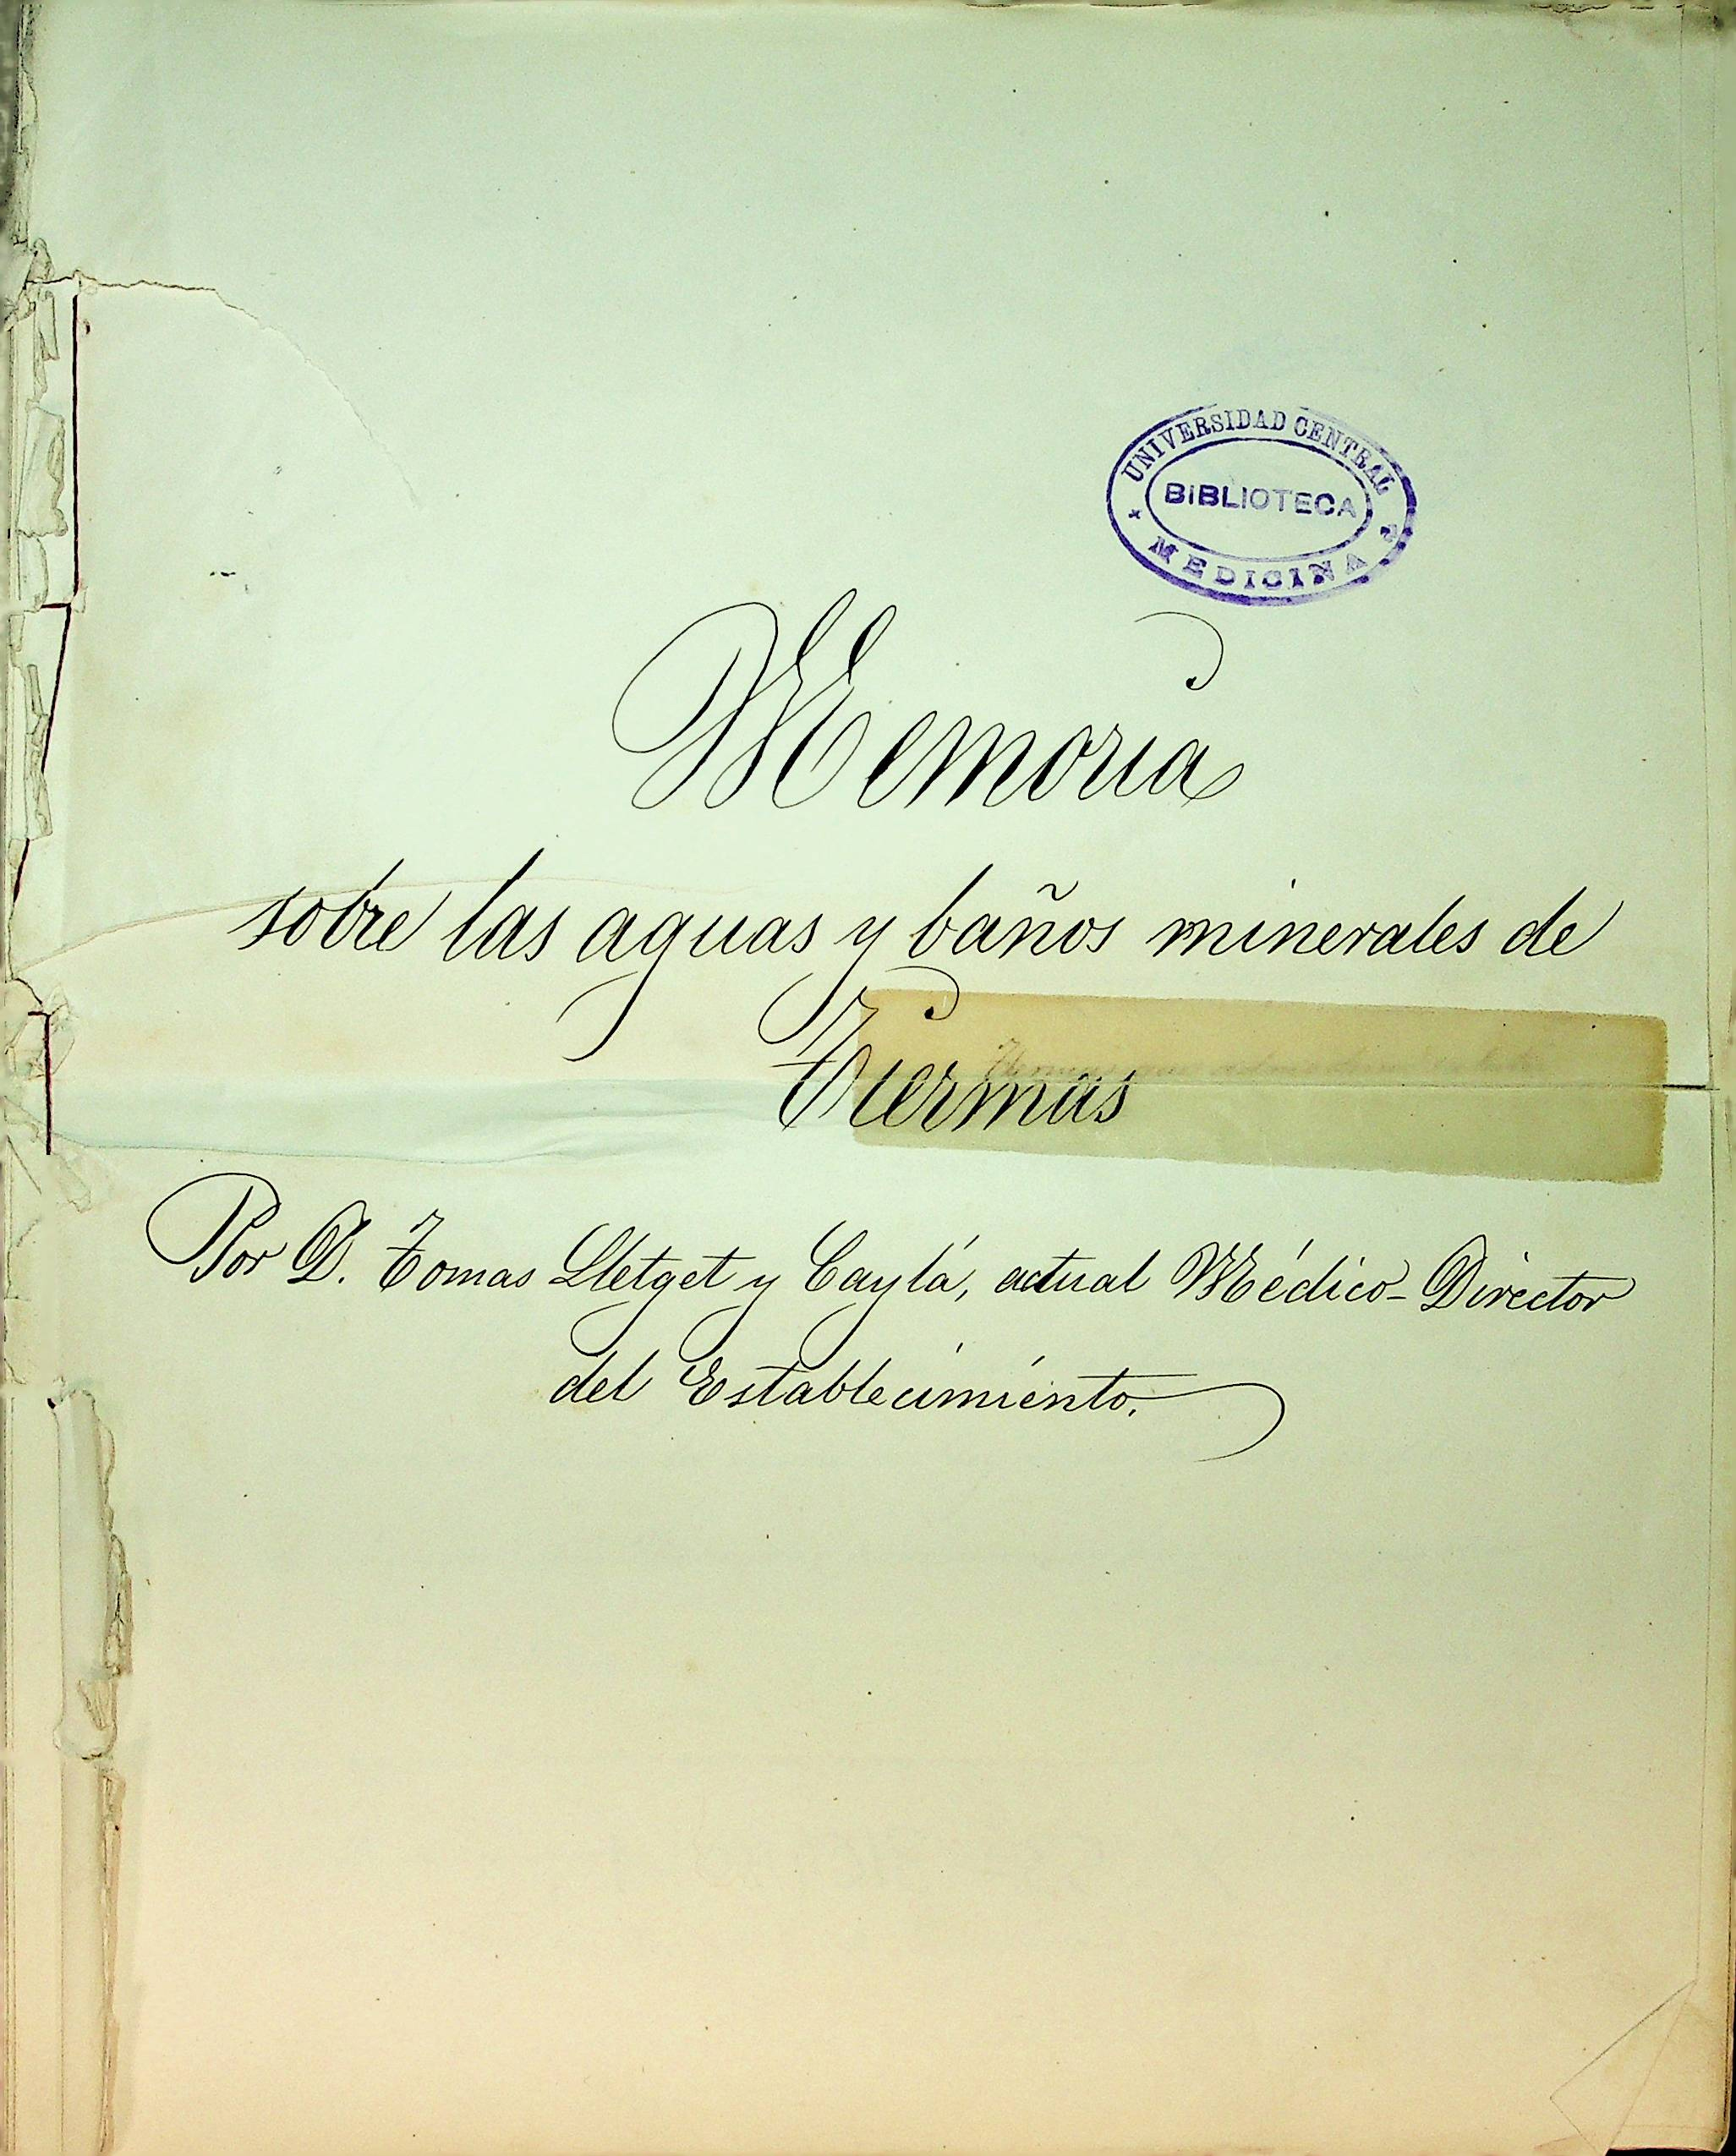 UNIVERSIDAD CENTRAL
BIBLIOTECA
MEDICINA
Memoria
sobre las aguas y baños minerales de
Tiermas
Por D. Tomas Lletget y Caylá, actual Médico-Director
del Establecimiento.